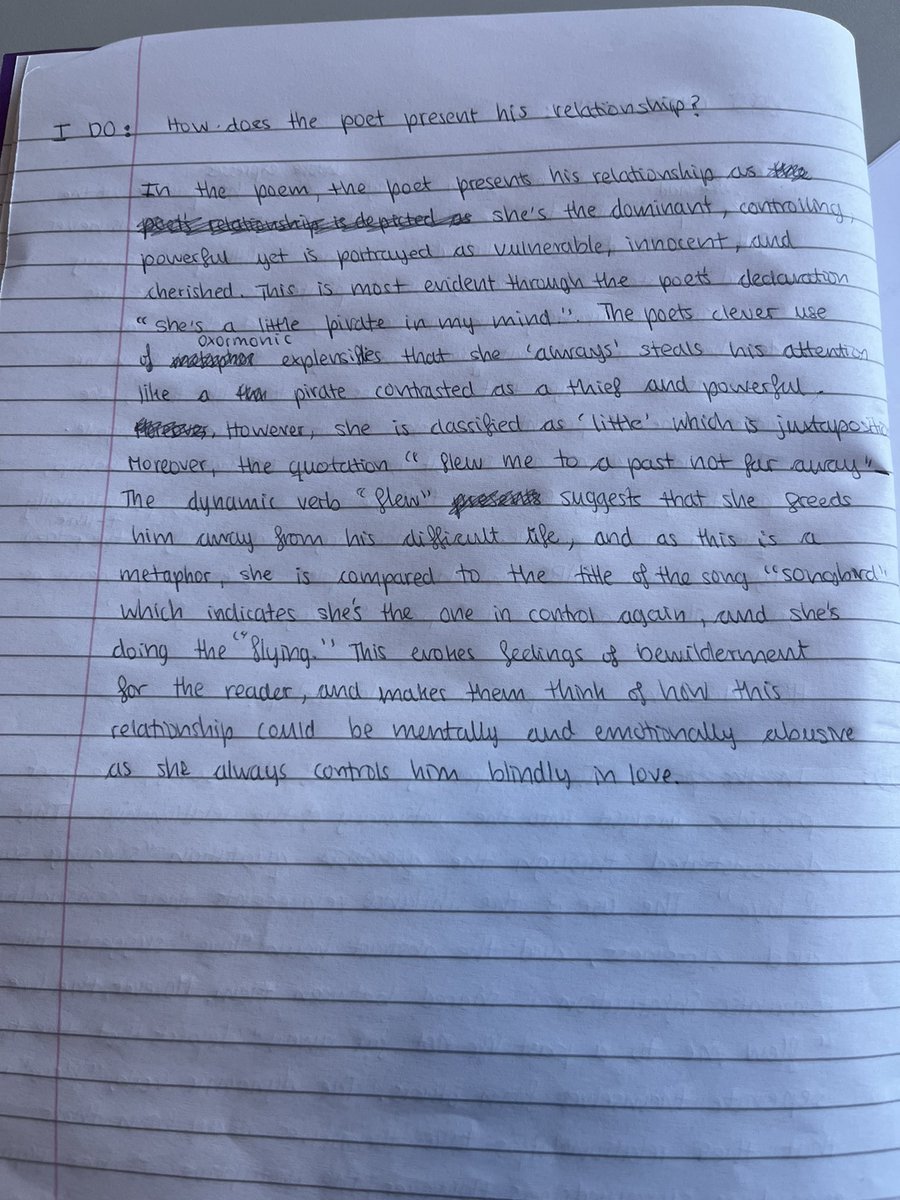 I DO: How does the poet present his relationship?
In the poem, the poet presents his relationship as
poets relationship is depicted as she's the dominant, controlling,
powerful yet is portrayed as vulnerable, innocent, and
cherished. This is most evident through the poets declaration
"she's a little pirate in my mind.". The poets clever use
oxormonic
of metaphor explensifies that she 'always' steals his attention
like a pirate contrasted as a thief and powerful.
However, she is classified as 'little' which is justcyposition
Moreover, the quotation "flew me to a past not far away"
The dynamic verb "flew" presents suggests that she freeds
him away from his difficult life, and as this is a
metaphor, she is compared to the title of the song "songbird"
which indicates she's the one in control again, and she's
doing the "flying." This evokes feelings of bewilderment
for the reader, and makes them think of how this
relationship could be mentally and emotionally abusive
as she always controls him blindly in love.